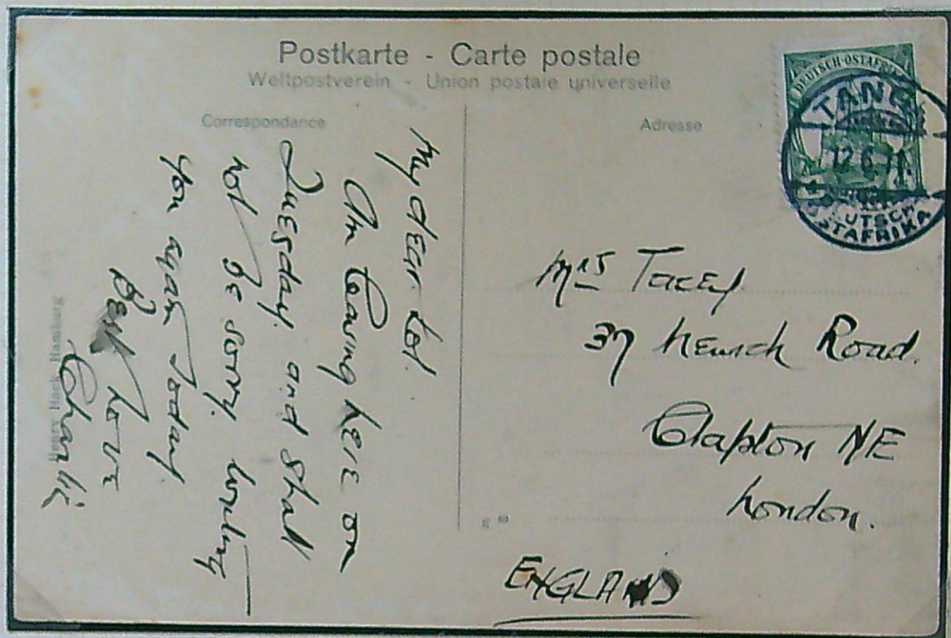 Postkarte - Carte postale
Weltpostverein - Union postale universelle
Correspondance
Adresse
DEUTSCH-OSTAFRIKA
TANGA
12.6.11
DEUTSCH-
OSTAFRIKA
My dear Lol.
Am leaving here on
Tuesday. and shall
not be sorry. writing
you again today
Best Love
Charlie
Mrs Tacey.
37 Road.
Clapton NE
London.
ENGLAND
Hamburg